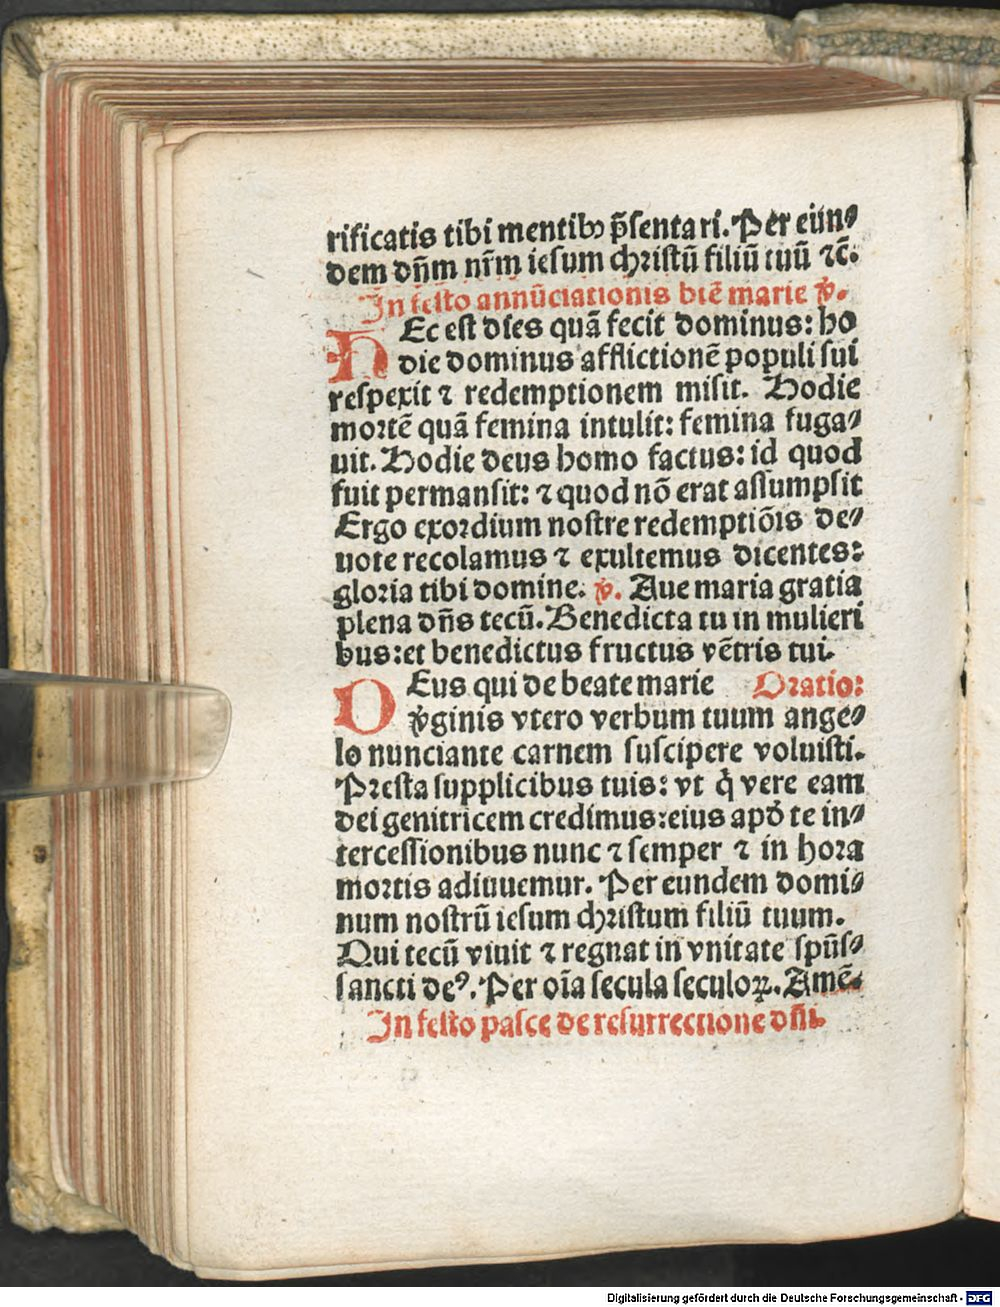 rificatis tibi mentibꝰ p̄sentari. Per eūn⸗
dem dn̄m nr̄m iesum christū filiū tuū ⁊c̄.
In festo annūciationis btē marie ꝟ.
HEc est dies quā fecit dominus: ho
die dominus afflictionē populi sui
respexit ⁊ redemptionem misit. Hodie
mortē quā femina intulit: femina fuga⸗
uit. Hodie deus homo factus: id quod
fuit permansit: ⁊ quod nō erat assumpsit
Ergo exordium nostre redemptiōis de⸗
uote recolamus ⁊ exultemus dicentes:
gloria tibi domine. ꝟ. Aue maria gratia
plena dn̄s tecū. Benedicta tu in mulieri
bus: et benedictus fructus vētris tui.
DEus qui de beate marie Oratio:
ꝟginis vtero verbum tuum ange⸗
lo nunciante carnem suscipere voluisti.
Presta supplicibus tuis: vt q̇ vere eam
dei genitricem credimus: eius apd̓ te in⸗
tercessionibus nunc ⁊ semper ⁊ in hora
mortis adiuuemur. Per eundem domi⸗
num nostrū iesum christum filiū tuum.
Qui tecū viuit ⁊ regnat in vnitate spūs⸗
sancti deꝰ. Per oīa secula seculoꝝ. Amē.
In festo pasce de resurrectione dn̄i.
Digitalisierung gefördert durch die Deutsche Forschungsgemeinschaft - DFG